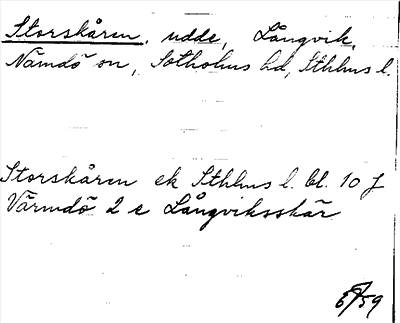 Storskåren, udde, Långvik,
Nämdö sn, Sotholms hd, Sthlms l.
Storskåren ek Sthlms l. bl. 10 f
Värmdö 2 e Långviksskär
59